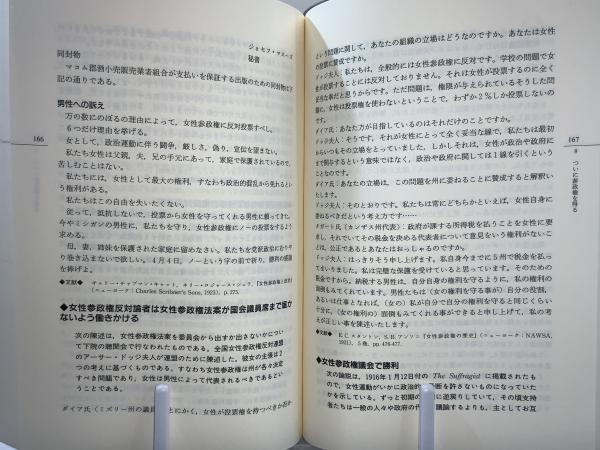 ジョセフ・マヌーズ
秘書
同封物
マコム郡酒小売販売業者組合が支払いを保証する出版のための同封物は下
記の通りである。
男性への訴え
万の数にのぼる理由によって、女性参政権に反対投票すべし。
6つだけ理由を挙げる。
女として、政治運動に伴う闘争、厳しさ、偽り、宣伝を望まない。
私たち女性は父親、夫、兄の手元にあって、家庭で保護されているので、
苦しむことはない。
私たちには、女性として最大の権利、すなわち政治的混乱から免れるとい
う権利がある。
私たちはこの自由を失いたくない。
従って、抵抗しないで、投票から女性を守ってくれる男性に頼ってきた。
今やミシガンの男性に、私たちを守り、女性参政権にノーの投票をするよう
求める。
母、妻、姉妹を保護された家庭に留めなさい。私たちを党派政治にむりや
り巻き込まないで欲しい。4月4日、ノーという字の前で祈り、勝利の感謝
を捧げよ。
◆文献◆ キャリー・チャップマン・キャット、ネリー・ロジャース・シュラ、『女性参政権と政治』
(ニューヨーク:Charles Scribner's Sons, 1923), p. 273.
◆女性参政権反対論者は女性参政権法案が国会議員席まで届か
ないよう働きかける
次の陳述は、女性参政権法案を委員会から出すか出さないかについ
て下院の聴聞会で行なわれたものである。全国女性参政権反対連盟
のアーサー・ドッジ夫人が連盟のために陳述した。彼女の主張は2
つの考えに基づくものである。すなわち女性参政権は州が各々決定
すべき問題であり、女性は男性によって代表されるべきであるとい
うことである。
ダイア氏(ミズリー州の議員)とにかく、女性が投票権を持つべきか否か
166
という問題に関して、あなたの組織の立場はどうなのですか。あなたは女性
の投票に賛成ですか。
ドッジ夫人:私たちは、全般的には女性参政権に反対です。学校の問題で女
性が投票することには反対しておりません。それは女性が投票するのに全く
妥当な事だと思うからです。ただ問題は、権限が与えられているそうした問
題に、女性は投票権を使わないということで、わずか2%しか投票しないの
です。
ダイア氏:あなた方が目指しているのはそれだけのことですか。
ドッジ夫人:そうです、それが女性にとって全く妥当な線で、私たちは最初
からいつもその立場をとっていました、しかしそれは、女性が政治や政府に
まで関与するという意味ではなく、政治や政府に関しては1線を引くという
ことなのです。
ダイア氏:あなたの立場は、この問題を州に委ねることに賛成すると解釈い
たします。
ドッジ夫人:そのとおりです。私たちは常にどちらかといえば、女性自身に
委ねるべきだという考え方です……
タガート氏(カンザス州代表):政府が課する所得税を払うことを女性に要
求し、それでいてその税金を決める代表者について意見をいう権利がないこ
とは、公正であるとあなたはおっしゃるのですか。
ドッジ夫人:はっきりそう申し上げます。私自身今までに5州で税金を払っ
てまいりました。私は完璧な保護を受けていると思っています。そのための
税金ですから。納税する男性は、自分自身の権利を守るように、私の権利の
面倒もみてくれています。男性たちは(女の権利を守る事が)自分の役割、
あるいは仕事となれば、(女の)私が自分で自分の権利を守ると同じくらい
十分に、(女の権利の)面倒もみてくれる事ができると申し上げて、私の考
えが正しい事を陳述いたします。
◆文献◆ E.C.スタントン、S.B.アンソニ『女性参政権の歴史』(ニューヨーク:NAWSA,
1921), 5巻, pp. 476-477.
◆女性参政権議会で勝利
次の論説は、1916年1月12日付の The Suffragist に掲載されたも
ので、女性運動がいかに政治的 断を許さないものになっていた
かを示している。ずっと初期の に逆戻りしていて、その頃支持
者たちは一般の人々や政府の代 議論するよりも、主としてお互
167
8 ついに参政権を得る